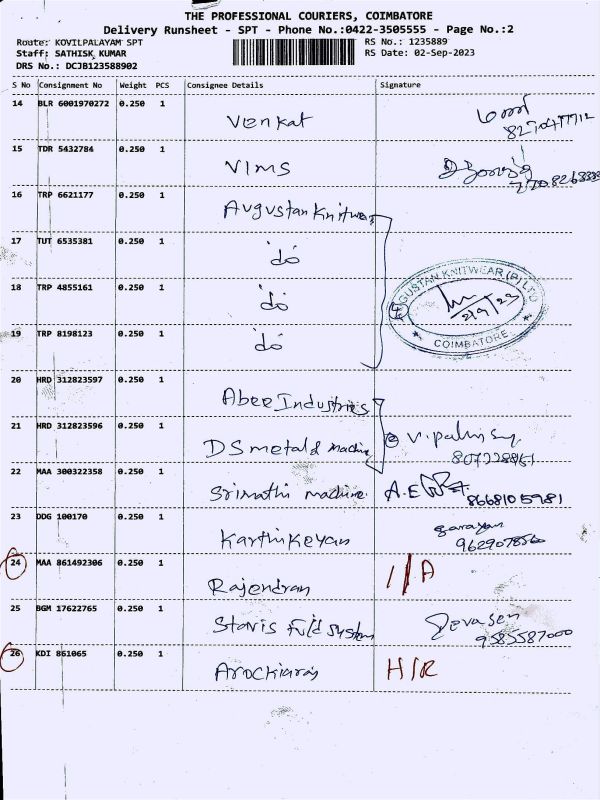 THE PROFESSIONAL COURIERS, COIMBATORE
Delivery Runsheet - SPT - Phone No.:0422-3505555 - Page No.:2
Route: KOVILPALAYAM SPT RS No.: 1235889
Staff: SATHISK KUMAR RS Date: 02-Sep-2023
DRS No.: DCJB123588902
S No Consignment No Weight PCS Consignee Details Signature
14 BLR 6001970272 0.250 1 Venkat
15 TDR 5432784 0.250 1 VIMS
16 TRP 6621177 0.250 1 Augustan Knitwear
17 TUT 6535381 0.250 1 do
18 TRP 4855161 0.250 1 do
19 TRP 8198123 0.250 1 do
AUGUSTAN KNITWEAR (P) LTD
2/9/23
COIMBATORE
20 HRD 312823597 0.250 1 Abee Industries
21 HRD 312823596 0.250 1 DS metal & machine
22 MAA 300322358 0.250 1 Srimathi machine 8668105981
23 DDG 100170 0.250 1 Karthikeyan
24 MAA 861492306 0.250 1 Rajendran I/A
25 BGM 17622765 0.250 1 Stovis Fuid System Devasen 9585587000
26 KDI 861065 0.250 1 Arockiaraj H/R